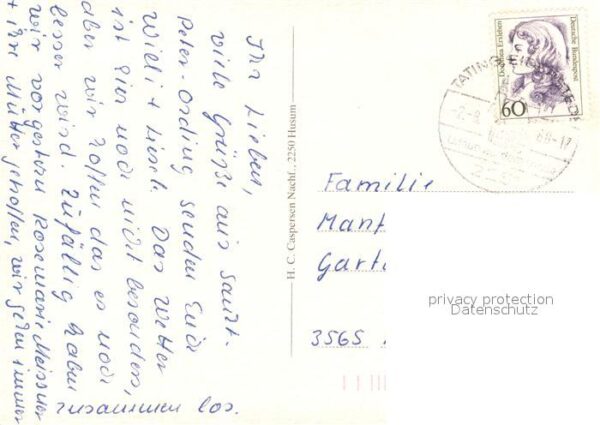 Ihr Lieben,
viele Grüße aus Sankt-
Peter-Ording senden Euch
Willi + Liesel. Das Wetter
ist hier noch nicht besonders,
aber wir hoffen das es noch
besser wird. Zufällig haben
wir vorgestern Rosemarie Meissner
+ ihre Mutter getroffen, wir gehen immer
zusammen los.
H. C. Caspersen Nachf., 2250 Husum
Dorothea Erxleben
Deutsche Bundespost
60
TATING
Familie
Mant
Gart
3565
privacy protection
Datenschutz